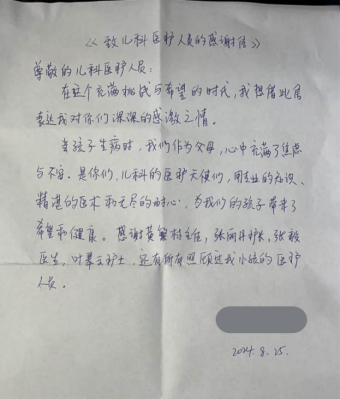 《致儿科医护人员的感谢信》
尊敬的儿科医护人员:
在这个充满挑战与希望的时代,我想借此届
表达我对你们深深的感激之情。
当孩子生病时,我们作为父母,心中充满了焦虑
与不安。是你们,儿科的医护天使们,用专业的知识、
精湛的医术和无尽的耐心,为我们的孩子带来了
希望和健康。感谢黄主任,张丽丹护长,张敏
医生,叶翠云护士,还有所有照顾过我小孩的医护
人员。
2024.8.25.